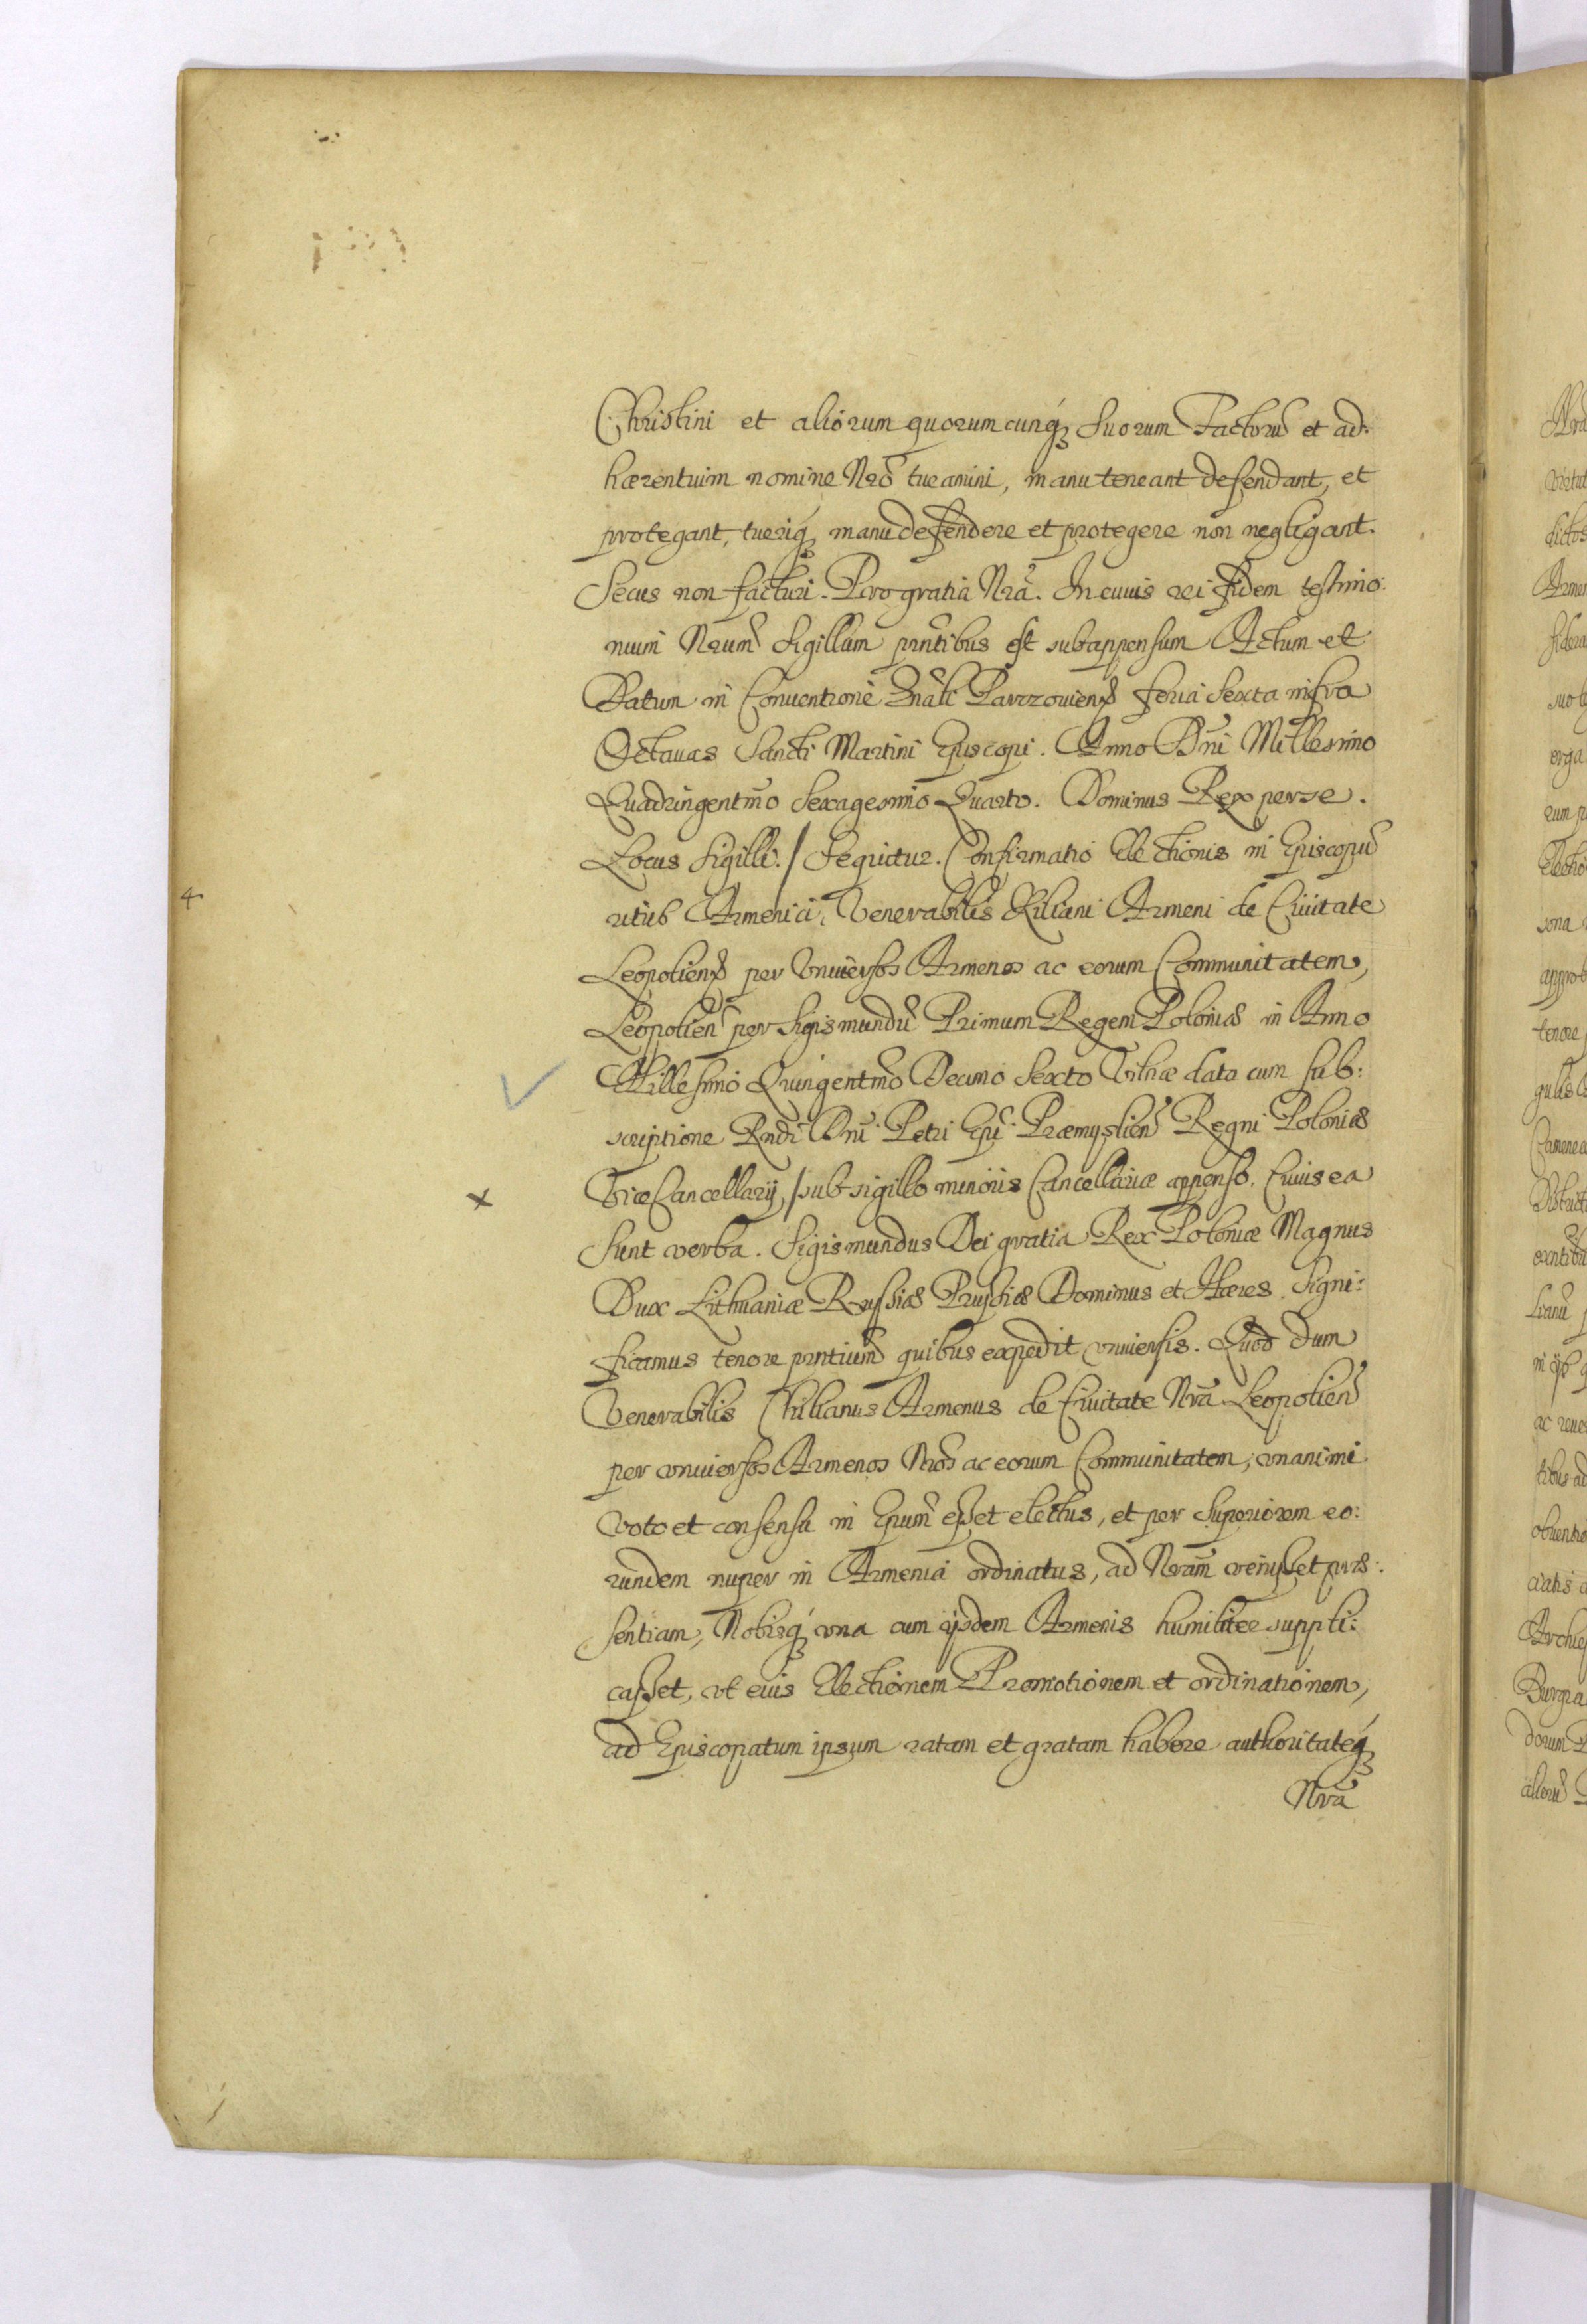 Christini et aliorum quorumcunq́ꝫ Suorum Factorũ et ad:
hærentium nomine Nrõ tueamini, manuteneant defendant, et
protegant, tueriq́ꝫ manudefendere et protegere non negligant.
Secus non facturi. Pro gratia Nrã. In cuius rei fidem testimo:
nium Nrum̃ Sigillum prñtibus est subappensum Actum et
Datum in Conuentione Gnãli Parczouien̄ feria Sexta infra
Octauas Sancti Martini Episcopi. Anno Dñi Millesimo
Quadringentmõ Sexagesimo Quarto. Dominus Rex per se.
Locus Sigilli. / Sequitur. Confirmatio Electionis in Episcopũ
ritus Armenici, Venerabilis Kiliani Armeni de Ciuitate
4
Leopolien̄ per Vniuersos Armenos ac eorum Communitatem,
Leopolien̄ per Sigismundũ Primum Regem Poloniæ in Anno
Millesimo Quingentmõ Decimo Sexto Vilnæ data cum sub:
scriptione Rndi Dñi Petri Epi Præmyslien̄ Regni Poloniæ
x
Vice Cancellarij, / sub sigillo minoris Cancellariæ appenso. Cuius ea
Sunt verba. Sigismundus Dei gratia Rex Poloniæ Magnus
Dux Lithuaniæ Russiæ Prussiæ Dominus et Hæres. Signi:
ficamus tenore prntium̃ quibus expedit vniuersis. Quod dum
Venerabilis Chilianus Armenus de Ciuitate Nrã Leopolien̄
per vniuersos Armenos Nrõs ac eorum Communitatem, vnanimi
voto et consensu in Epum̃ esset electus, et per Superiorem eo:
rundem nuper in Armenia ordinatus, ad Nram̃ venisset præ:
sentiam, Nobisq́ꝫ vna cum ijsdem Armenis humiliter suppli:
casset, vt eius Electionem Promotionem et ordinationem,
ad Episcopatum ipsum ratam et gratam habere authoritateq́ꝫ
Nrã